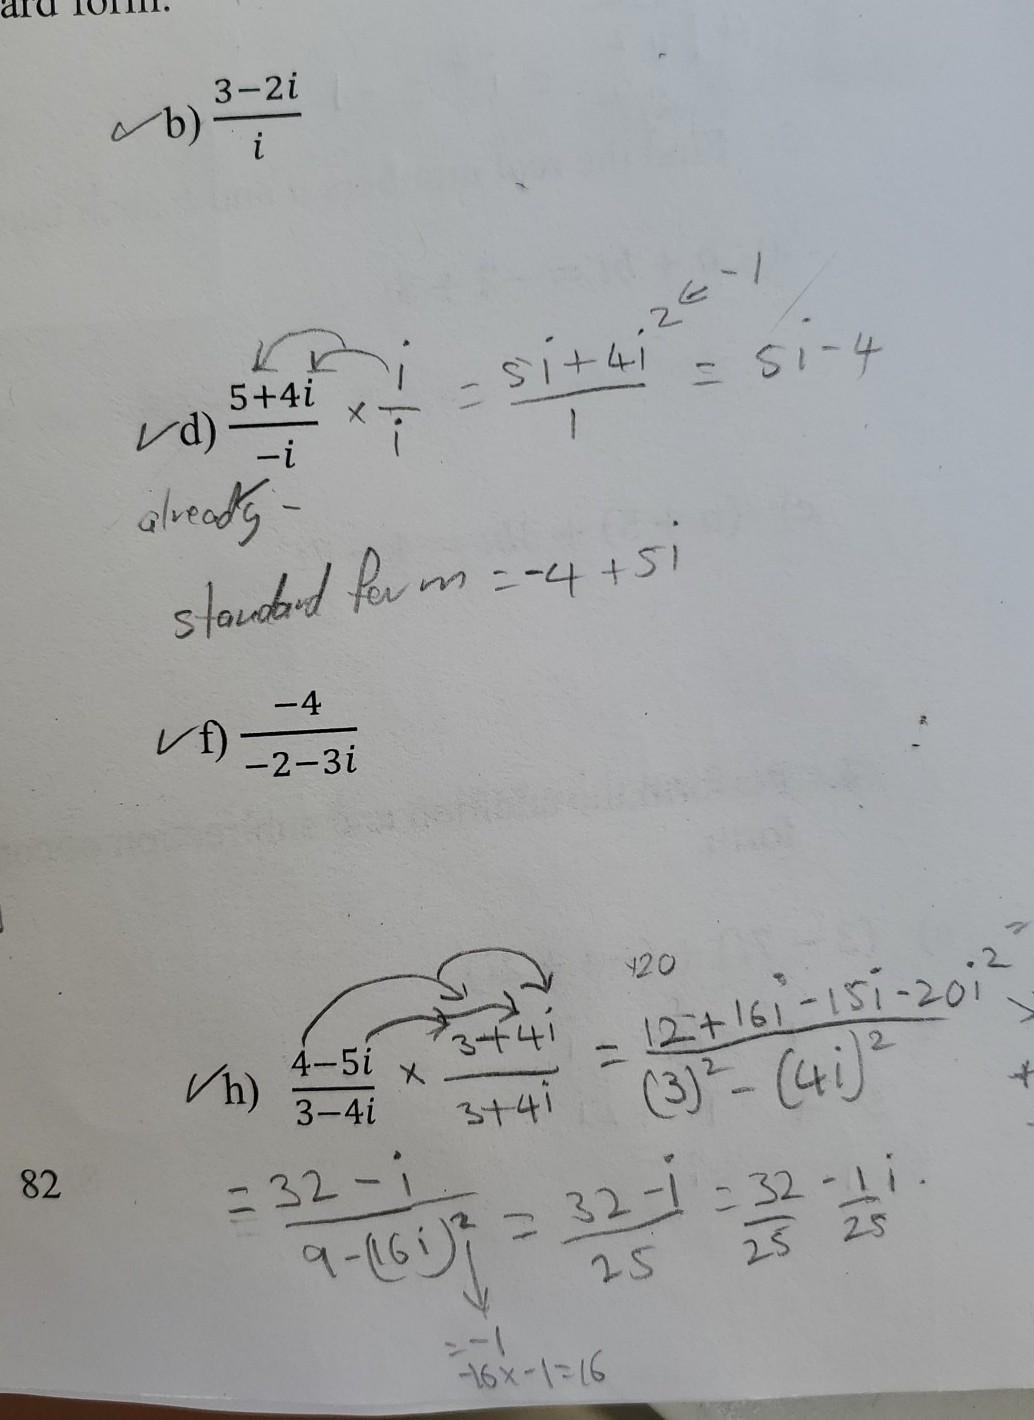 ard form.
b) \frac{3-2i}{i}
d) \frac{5+4i}{-i} × \frac{i}{i} = \frac{5i+4i^2}{1} = 5i-4
← -1
already -
standard form = -4+5i
f) \frac{-4}{-2-3i}
+20
h) \frac{4-5i}{3-4i} × \frac{3+4i}{3+4i} = \frac{12+16i-15i-20i^2}{(3)^2-(4i)^2} =
82
= \frac{32-i}{9-(16i)^2} = \frac{32-i}{25} = \frac{32}{25} - \frac{1}{25}i.
= -1
-16 × -1 = 16